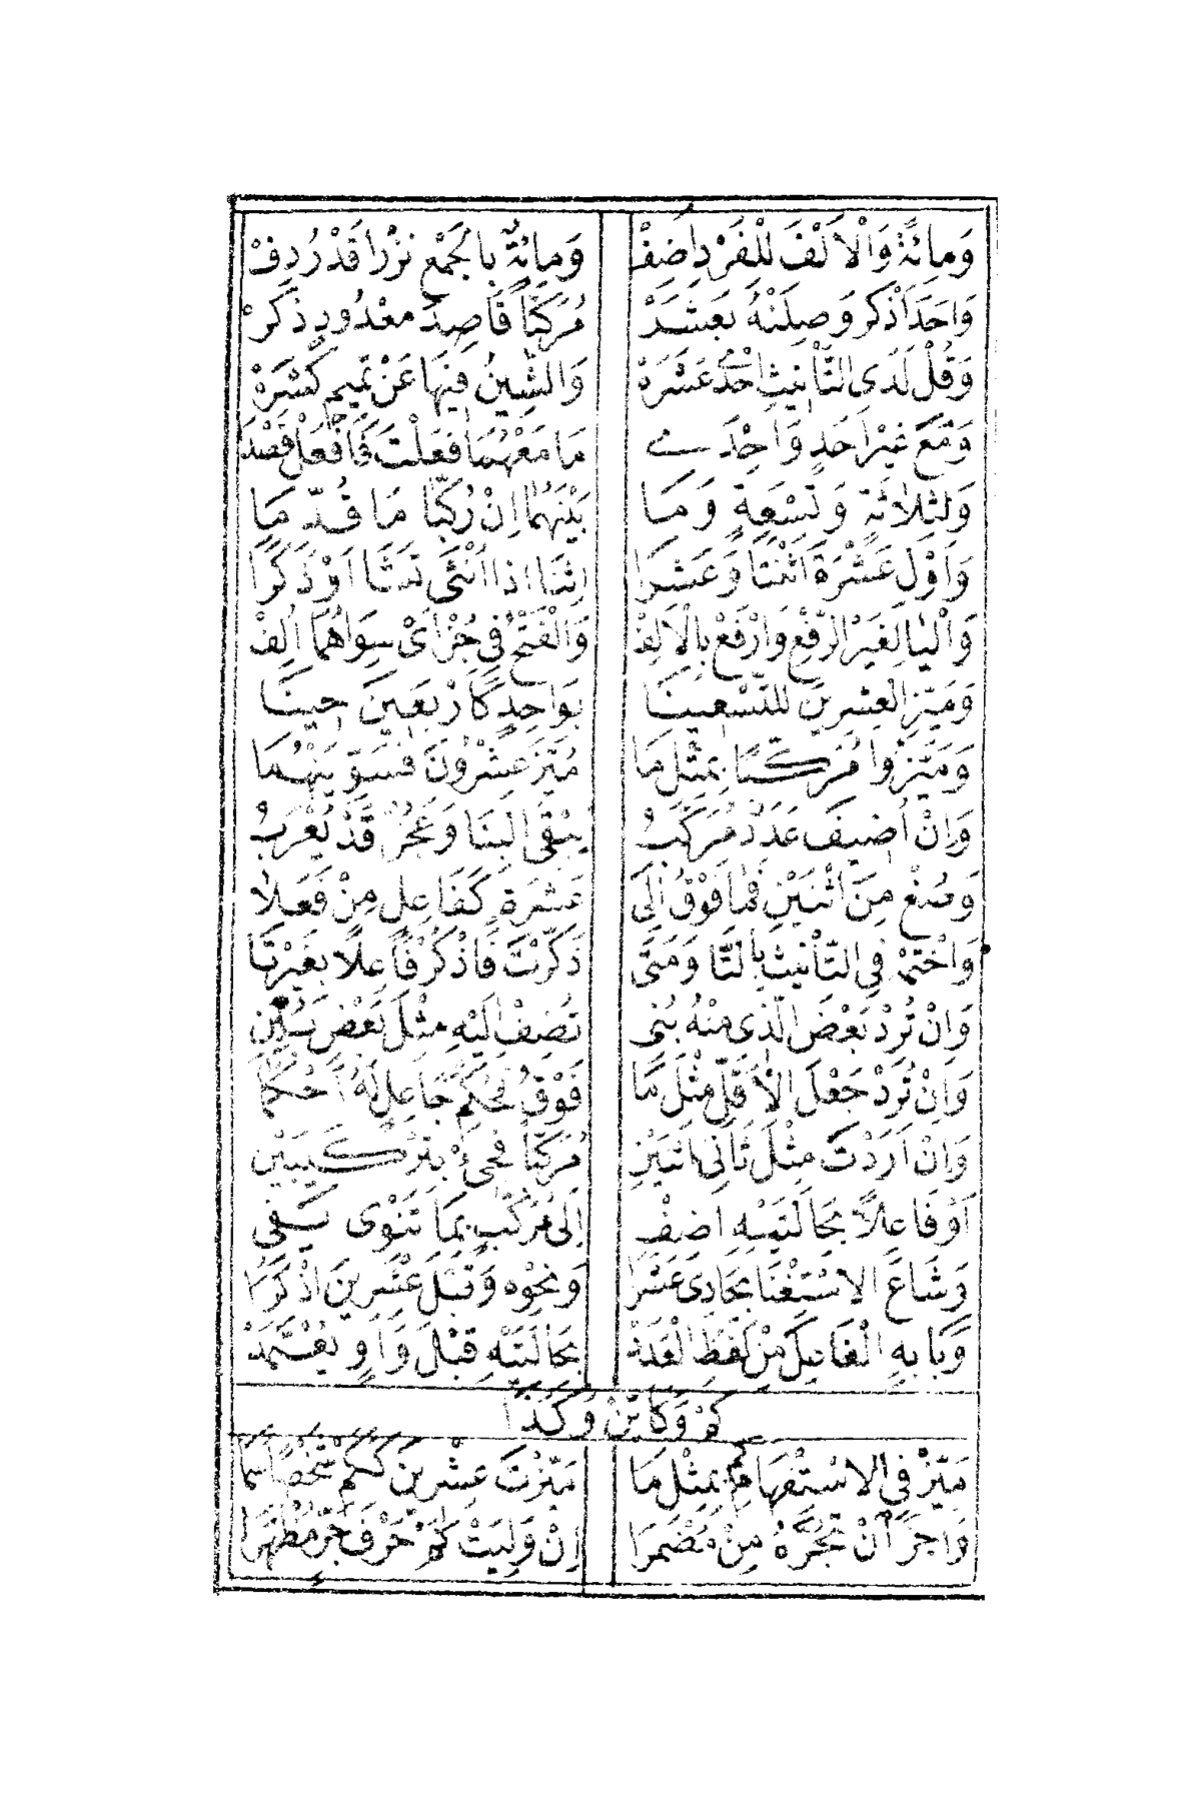 وَمِائَةً وَالْاَلْفَ لِلْفَرْدِ اَضِفْ وَمِائَةٌ بِالْجَمْعِ نَزْرًا قَدْ رُدِفْ
وَاَحَدَ اْذْكُر وَصِلَنْهُ بَعَشَرْ مُرَكَّبًا قَاصِدَ مَعْدُودٍ ذَكَرْ
وَقُلْ لَدَى التَّأْنِيثِ اِحْدٰى عَشَرَهْ وَالشِّينُ فِيهَا عَنْ تَمِيمٍ كَسْرَهْ
وَمَعَ غَيْرِ اَحَدٍ وَاِحْدَى مَا مَعْهُمَا فَعَلْتَ فَافْعَلْ قَصْدَا
وَلِثَلٰاثَةٍ وَتِسْعَةٍ وَمَا بَيْنَهُمٰا اِنْ رُكِّبَا مَا قُدِّمَا
وَاَوْلِ عَشْرَةَ اثْنَتَا وَعَشَرَا اِثْنَا اِذَا اُنْثَى تَشَا اَوْ ذَكَرَا
وَالْيٰا لِغَيْرِ الرَّفْعِ وَارْفَعْ بِالْاَلِفْ وَالْفَتْحُ فِي جُزْاَىْ سِوَاهُمَا اُلِفْ
وَمَيِّزِ الْعِشْرِينَ لِلتِّسْعِينَا بِوَاحِدٍ كَاَرْبَعِينَ حِينَا
وَمَيَّزُوا مُرَكَّبًا بِمِثْلِ مَا مُيِّزَ عِشْرُونَ فَسَوِّيَنْهُمَا
وَاِنْ اُضِيفَ عَدَدٌ مُرَكَّبُ يَبْقَى الْبِنَا وَعَجُزٌ قَدْ يُعْرَبُ
وَصُغْ مِنَ اثْنَيْنِ فَمٰا فَوْقُ اِلَى عَشَرَةٍ كَفَاعِلٍ مِنْ فَعَلاَ
وَاخْتِمْهُ فِي التَّأْنِيثِ بِالتَّا وَمَتَى ذَكَّرْتَ فَاذْكُرْ فَاعِلًا بِغَيْرِ تَا
وَاِنْ تُرِدْ بَعْضَ الَّذِى مِنْهُ بُنِى تُضِفْ اِلَيْهِ مِثْلَ بَعْضٍ بَيِّنِ
وَاِنْ تُرِدْ جَعْلَ الْاَقَلِّ مِثْلَ مَا فَوْقُ فَحُكْمَ جَاعِلٍ لَهُ احْكُمَا
وَاِنْ اَرَدْتَ مِثْلَ ثَانِى اثْنَيْنِ مُرَكَّبًا فَجِئْ بِتَرْكِيبَيْنِ
اَوْ فَاعِلاً بِحَالَتَيْهِ اَضِفْ اِلَى مُرَكَّبٍ بِمَا تَنْوِى يَفِى
وَشَاعَ الْاِسْتِغْنَا بِحَادِى عَشَرَا وَنَحْوِهِ وَقَبْلَ عِشْرِينَ اذْكُرَا
وَبَابِهِ الْفَاعِلَ مِنْ لَفْظِ الْعَدَدْ بِحَالَتَيْهِ قَبْلَ وَاوٍ يُعْتَمَدْ
كَمْ وَكَاَيِّنْ وَكَذَا
مَيِّزْ فِي الْاِسْتِفْهَامِ كَمْ بِمِثْلِ مَا مَيَّزْتَ عِشْرِينَ كَكَمْ شَخْصًا سَمَا
وَاَجِزْ اَنْ تَجُرَّهُ مِنْ مُضْمَرَا اِنْ وَلِيَتْ كَمْ حَرْفَ جَرٍّ مُظْهَرَا